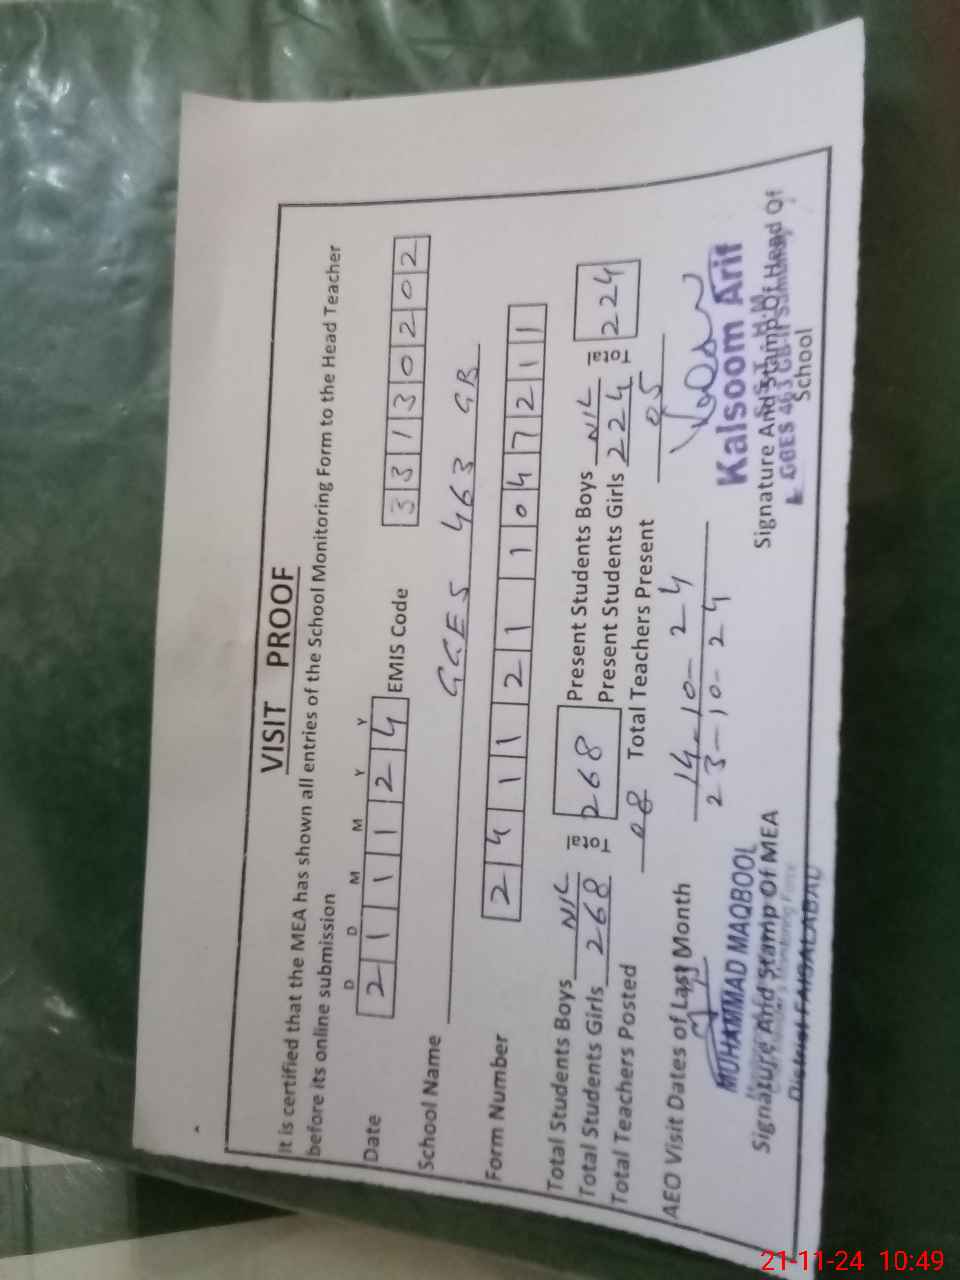 VISIT PROOF
It is certified that the MEA has shown all entries of the School Monitoring Form to the Head Teacher
before its online submission
D D M M Y Y
Date 2 1 1 1 2 4 EMIS Code 3 3 1 3 0 2 0 2
School Name GGES 463 GB
Form Number 2 4 1 1 2 1 1 0 4 7 2 1 1
Total Students Boys NIL Total 268 Present Students Boys NIL Total 224
Total Students Girls 268 Present Students Girls 224
Total Teachers Posted 08 Total Teachers Present 05
AEO Visit Dates of Last Month 14-10-24
23-10-24
MUHAMMAD MAQBOOL
Signature And Stamp Of MEA
District FAISALABAD
Kalsoom Arif
Signature And Stamp Of Head Of
School
GGES 463 GB
21-11-24 10:49